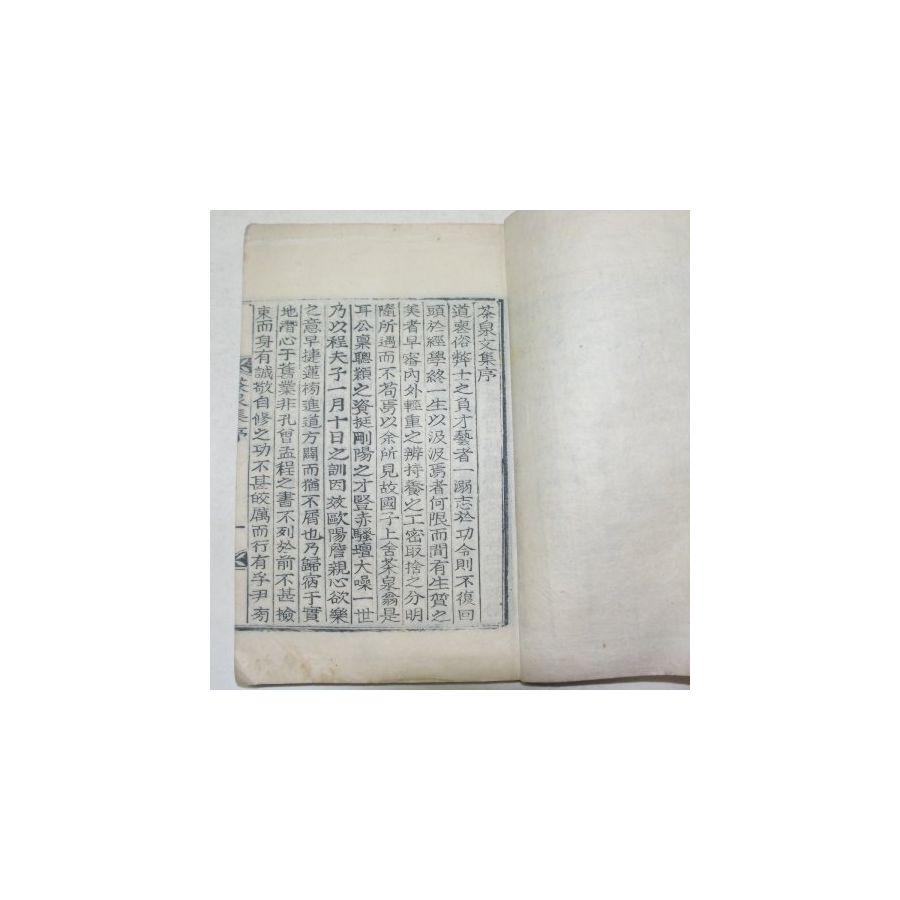 茶泉文集序
道喪俗弊士之負才藝者一溺志於功令則不復回
頭於經學終一生以汲汲焉者何限而間有生質之
美者早審內外輕重之辨持養之工密取捨之分明
隨所遇而不苟焉以余所見故國子上舍茶泉翁是
耳公稟聰穎之資挺剛陽之才豎赤騷壇大噪一世
乃以程夫子一月十日之訓因效歐陽詹親心欲樂
之意早捷蓮榜進道方闊而猶不屑也乃歸病于實
地潛心于舊業非孔曾孟程之書不列於前不甚撿
束而身有誠敬自修之功不甚皎厲而行有孚尹
茶泉集序
一